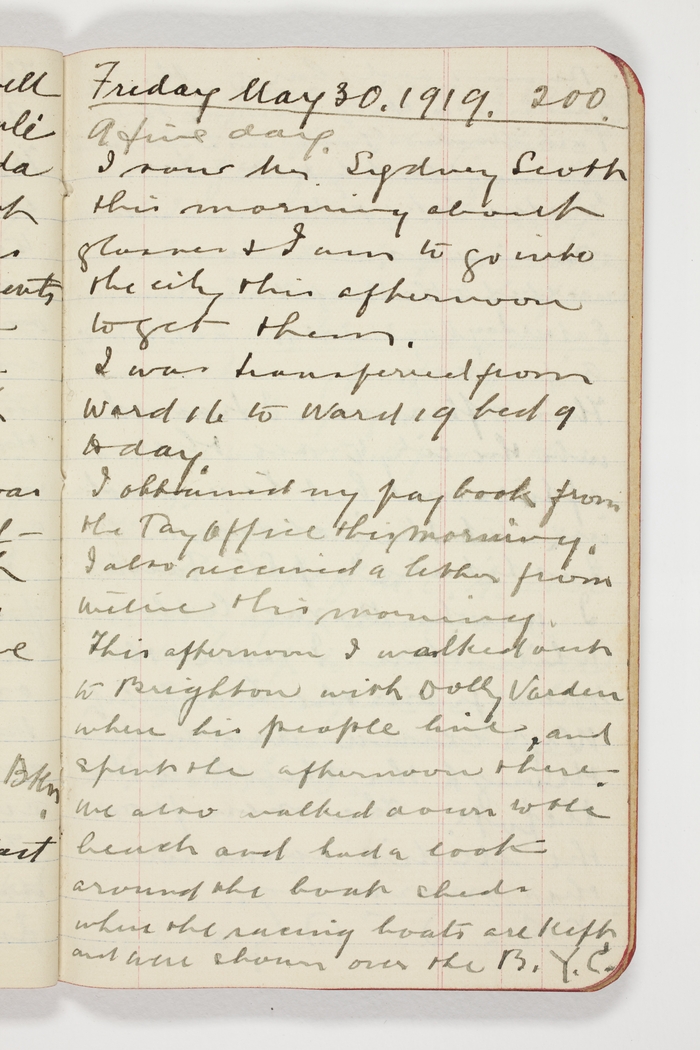 Friday May 30. 1919. 200.
A fine day.
I saw Mr. Sydney Scott
this morning about
glasses & I am to go into
the city this afternoon
to get them.
I was transferred from
Ward 16 to Ward 19 bed 9
to day.
I obtained my pay book from
the Pay Office this morning.
I also received a letter from
this morning.
This afternoon I walked out
to Brighton with Dolly Varden
where his people live, and
spent the afternoon there.
We also walked down to the
beach and had a look
around the boat sheds
where the racing boats are kept
and were shown over the B. Y. C.
ell
da
ents
was
ve
ast